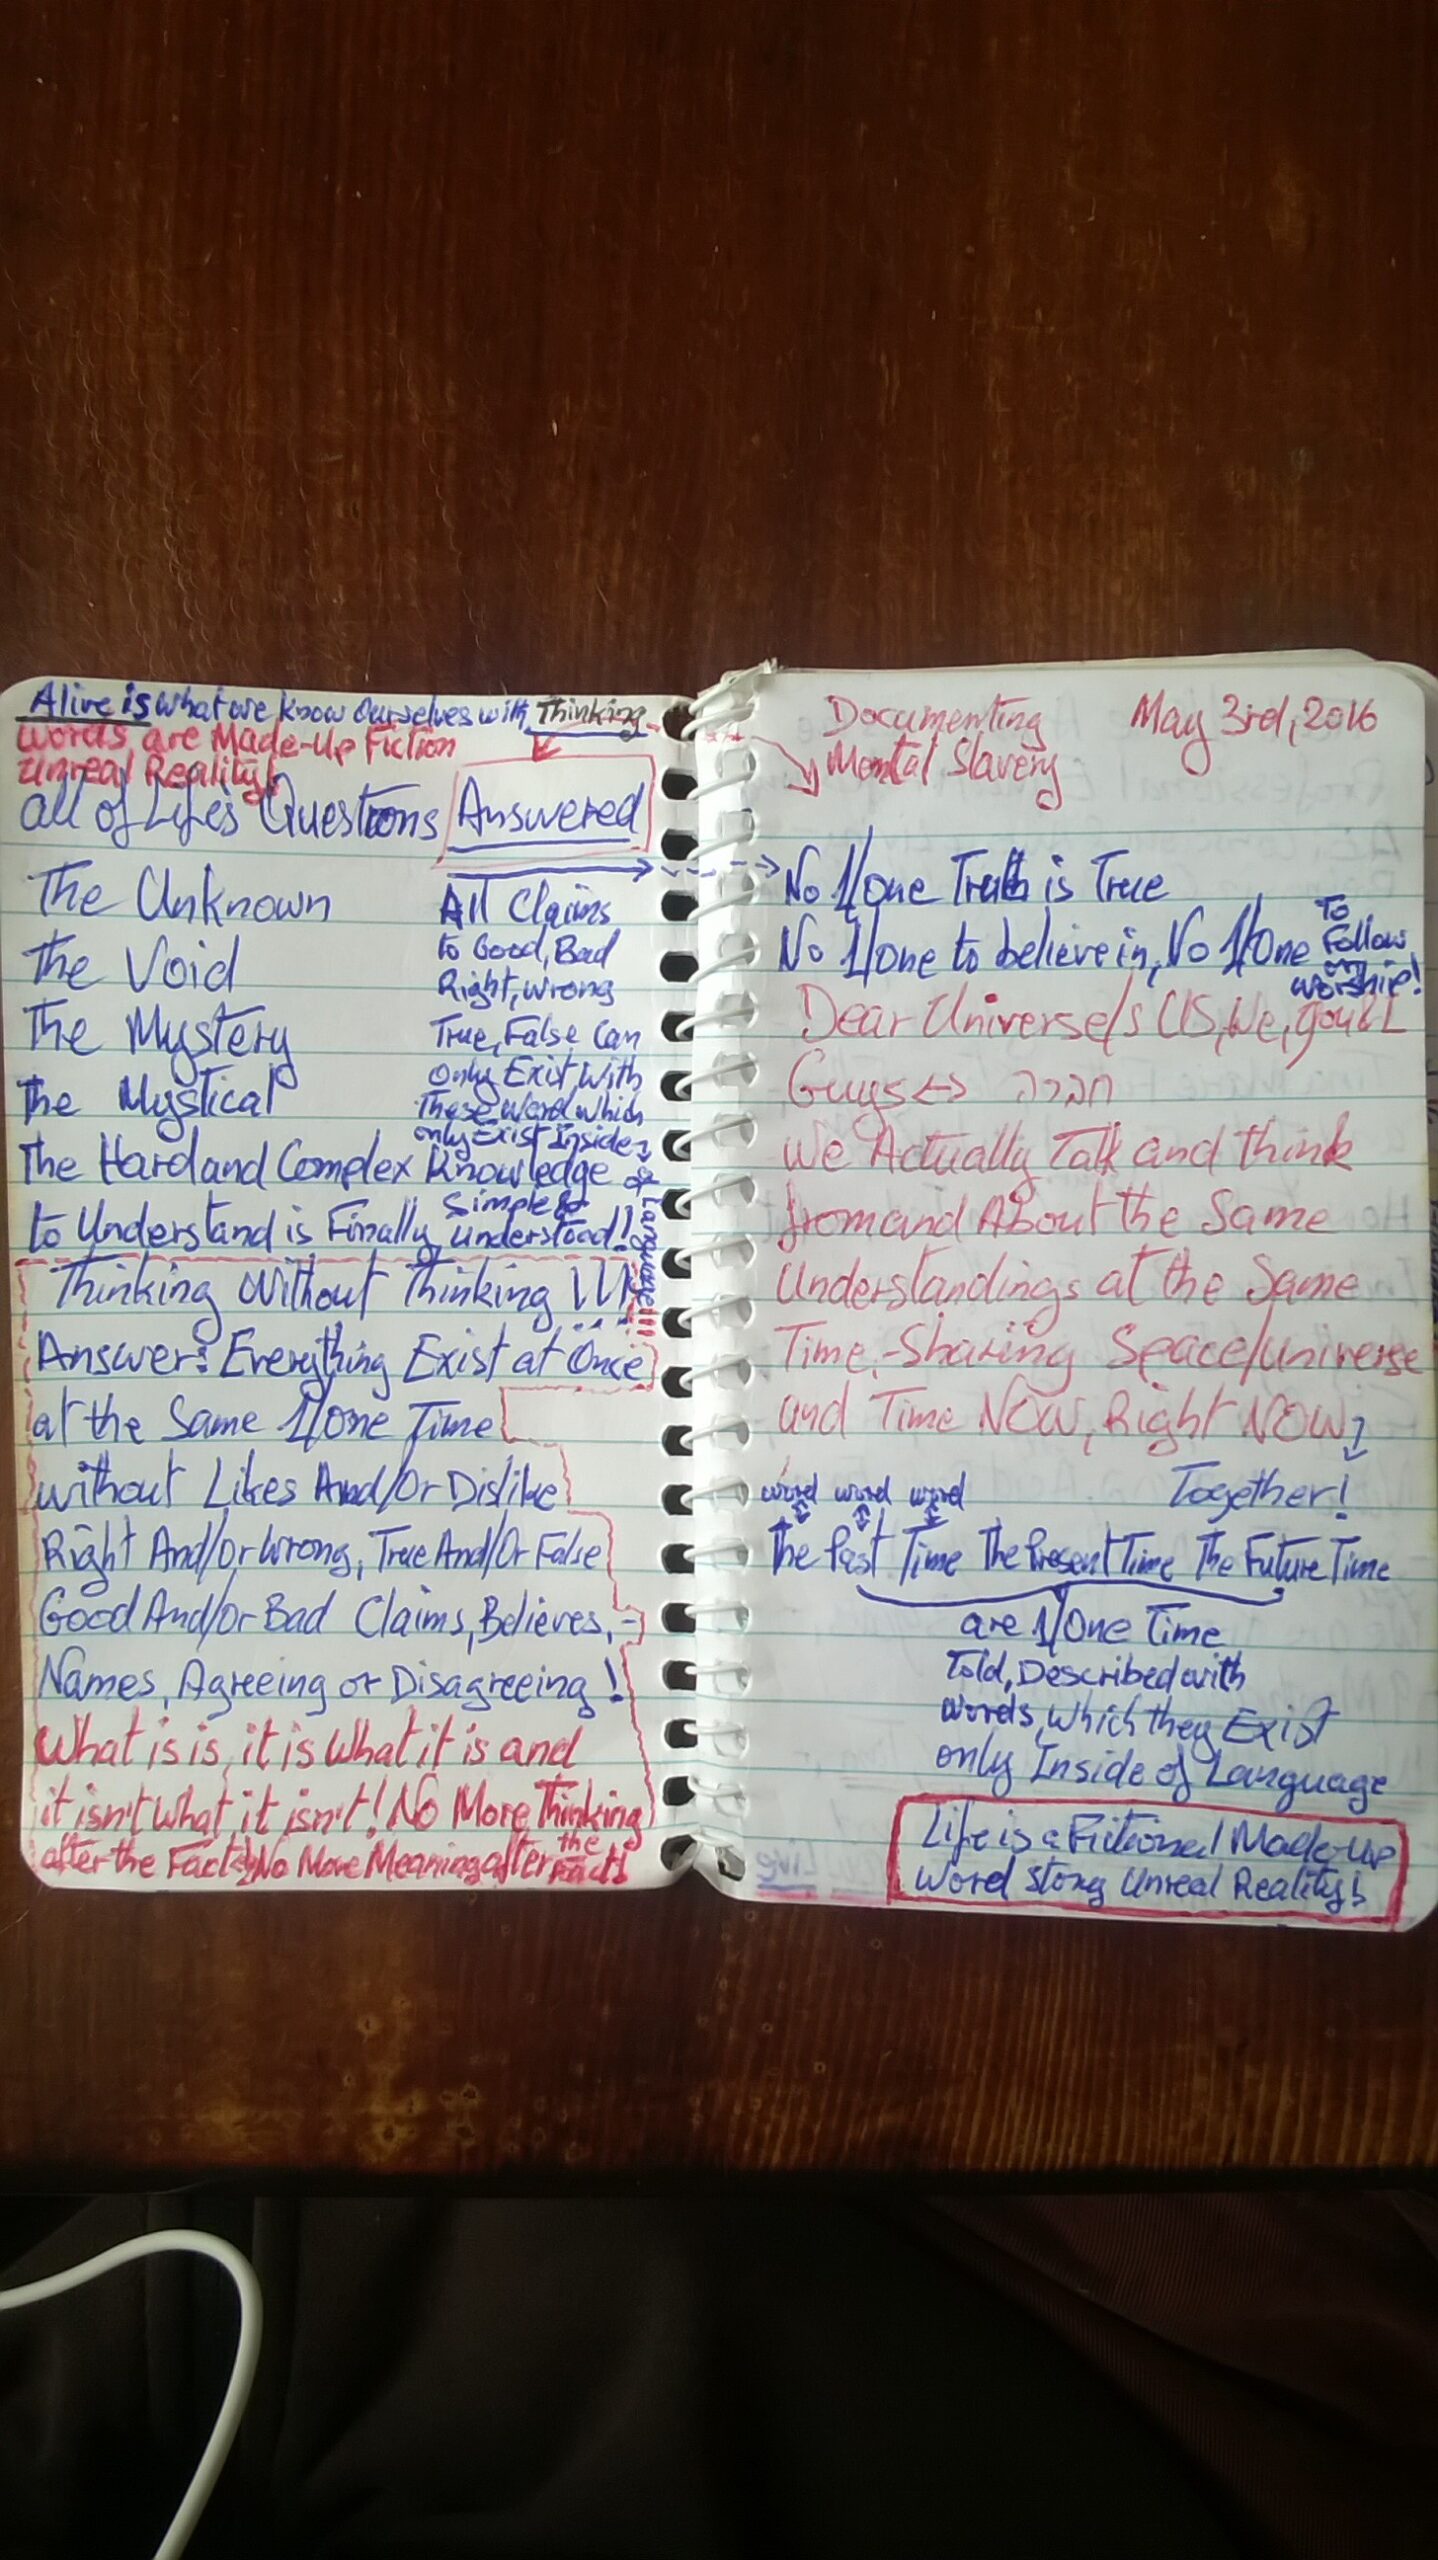 Alive is what we know ourselves with Thinking
Words are Made-Up Fiction
Unreal Reality!
All of Life's Questions Answered
The Unknown
The Void
The Mystery
The Mystical
All Claims
to Good, Bad
Right, Wrong
True, False Can
only Exist With
These Word which
only Exist Inside
of Language!!!
The Hard and Complex Knowledge
to Understand is Finally Simple to understood!
Thinking Without Thinking !!!
Answer: Everything Exist at Once
at the Same 1/one Time
without Likes And/Or Dislike
Right And/or Wrong, True And/Or False
Good And/Or Bad Claims, Believes,-
Names, Agreeing or Disagreeing!
What is is, it is What it is and
it isn't what it isn't! No More Thinking
after the Fact No More Meaning after the Fact!
Documenting May 3rd, 2016
Mental Slavery
No 1/one Truth is True
No 1/one to believe in, No 1/One To Follow or Worship!
Dear Universe/s US, We, You & I
Guys <-> חברה
We Actually Talk and think
from and About the Same
Understandings at the Same
Time,-Sharing Space/universe
and Time NOW, Right NOW
Together!
word word word
The Past Time The Present Time The Future Time
are 1/One Time
Told, Described with
words, which they Exist
only Inside of Language
Life is a Fictional Made-up
Word Story Unreal Reality!